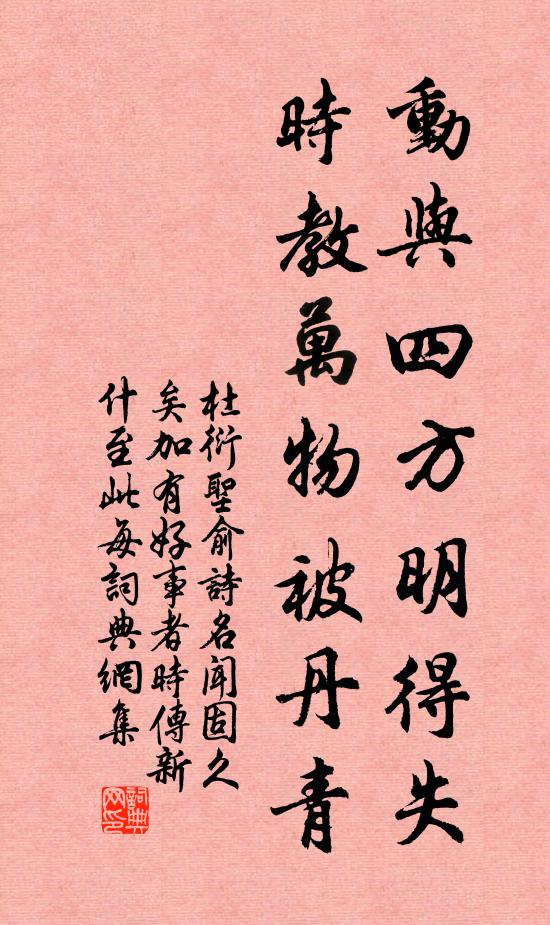 動與四方明得失
時教萬物被丹青
杜衍聖俞詩名聞固久
矣加有好事者時傳新
什至此每詞典網集
詞典
网印